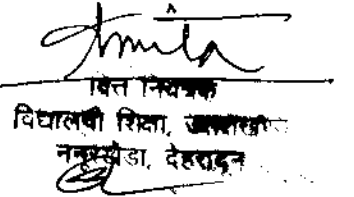 वित्त नियंत्रक
विद्यालयी शिक्षा, उत्तराखण्ड
ननूरखेडा, देहरादून